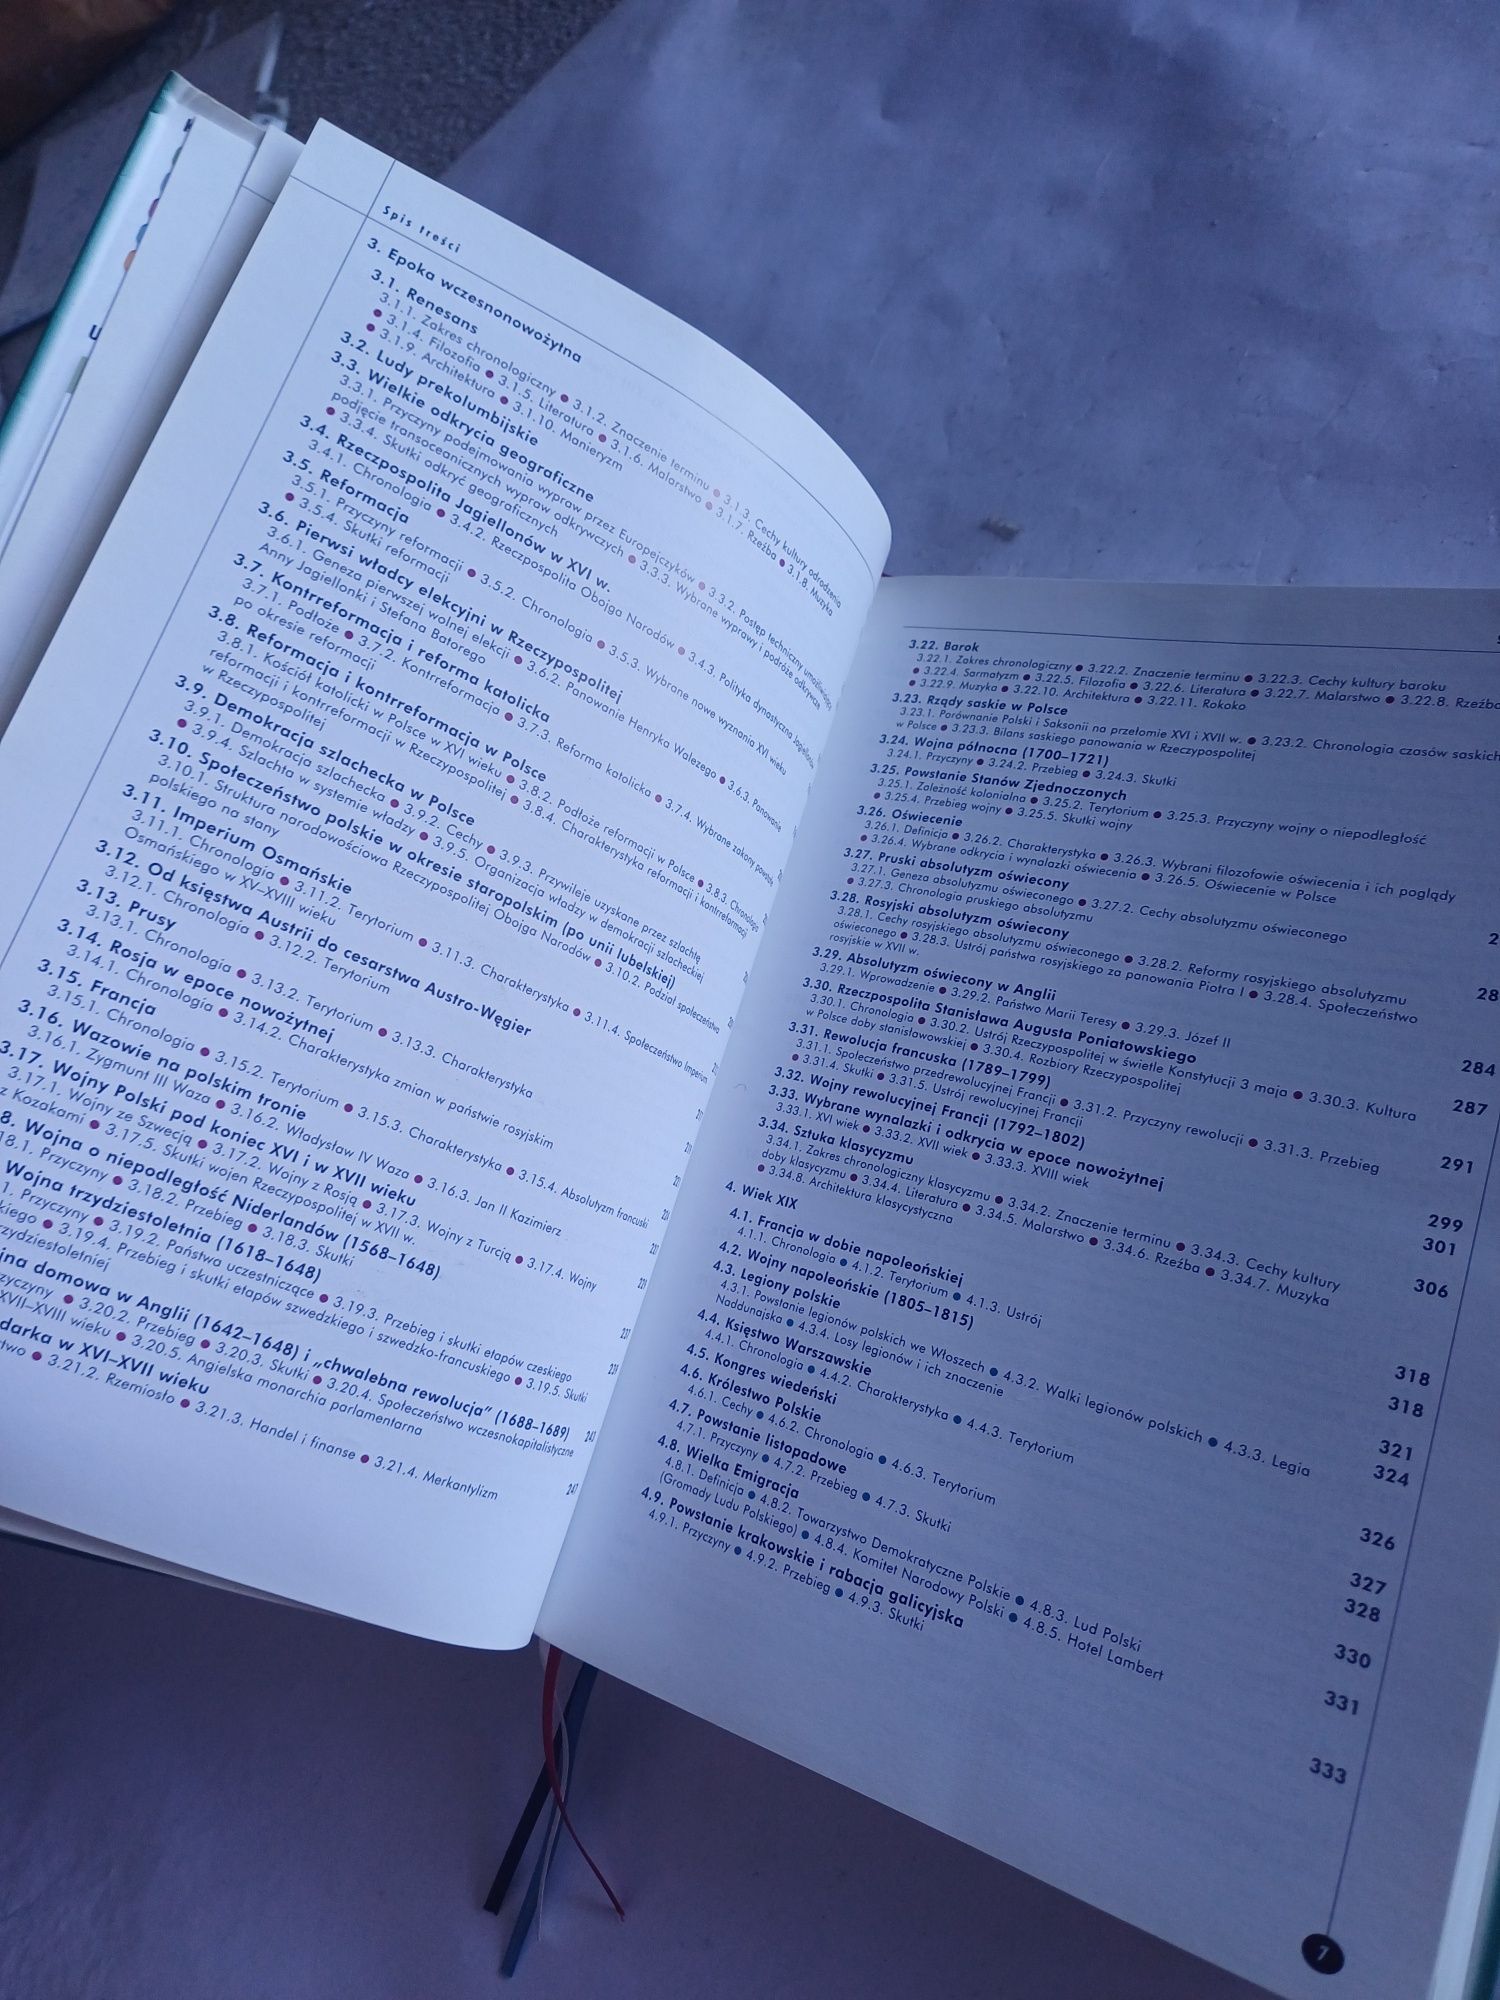 Spis treści
3. Epoka wczesnonowożytna
3.1. Renesans
3.1.1. Zakres chronologiczny ● 3.1.2. Znaczenie terminu ● 3.1.3. Cechy kultury odrodzenia
● 3.1.4. Filozofia ● 3.1.5. Literatura ● 3.1.6. Malarstwo ● 3.1.7. Rzeźba ● 3.1.8. Muzyka
● 3.1.9. Architektura ● 3.1.10. Manieryzm
3.2. Ludy prekolumbijskie
3.3. Wielkie odkrycia geograficzne
3.3.1. Przyczyny podejmowania wypraw przez Europejczyków ● 3.3.2. Postęp techniczny umożliwiający
podjęcie transoceanicznych wypraw odkrywczych ● 3.3.3. Wybrane wyprawy i podróże odkrywcze
● 3.3.4. Skutki odkryć geograficznych
3.4. Rzeczpospolita Jagiellonów w XVI w.
3.4.1. Chronologia ● 3.4.2. Rzeczpospolita Obojga Narodów ● 3.4.3. Polityka dynastyczna Jagiellonów
3.5. Reformacja
3.5.1. Przyczyny reformacji ● 3.5.2. Chronologia ● 3.5.3. Wybrane nowe wyznania XVI wieku
● 3.5.4. Skutki reformacji
3.6. Pierwsi władcy elekcyjni w Rzeczypospolitej
3.6.1. Geneza pierwszej wolnej elekcji ● 3.6.2. Panowanie Henryka Walezego ● 3.6.3. Panowanie
Anny Jagiellonki i Stefana Batorego
3.7. Kontrreformacja i reforma katolicka
3.7.1. Podłoże ● 3.7.2. Kontrreformacja ● 3.7.3. Reforma katolicka ● 3.7.4. Wybrane zakony powstałe
po okresie reformacji
3.8. Reformacja i kontrreformacja w Polsce
3.8.1. Kościół katolicki w Polsce w XVI wieku ● 3.8.2. Podłoże reformacji w Polsce ● 3.8.3. Chronologia
reformacji i kontrreformacji w Rzeczypospolitej ● 3.8.4. Charakterystyka reformacji i kontrreformacji
w Rzeczypospolitej
3.9. Demokracja szlachecka w Polsce
3.9.1. Demokracja szlachecka ● 3.9.2. Cechy ● 3.9.3. Przywileje uzyskane przez szlachtę
● 3.9.4. Szlachta w systemie władzy ● 3.9.5. Organizacja władzy w demokracji szlacheckiej
3.10. Społeczeństwo polskie w okresie staropolskim (po unii lubelskiej)
3.10.1. Struktura narodowościowa Rzeczypospolitej Obojga Narodów ● 3.10.2. Podział społeczeństwa
polskiego na stany
3.11. Imperium Osmańskie
3.11.1. Chronologia ● 3.11.2. Terytorium ● 3.11.3. Charakterystyka ● 3.11.4. Społeczeństwo Imperium
Osmańskiego w XV–XVIII wieku
3.12. Od księstwa Austrii do cesarstwa Austro-Węgier
3.12.1. Chronologia ● 3.12.2. Terytorium
3.13. Prusy
3.13.1. Chronologia ● 3.13.2. Terytorium ● 3.13.3. Charakterystyka
3.14. Rosja w epoce nowożytnej
3.14.1. Chronologia ● 3.14.2. Charakterystyka zmian w państwie rosyjskim
3.15. Francja
3.15.1. Chronologia ● 3.15.2. Terytorium ● 3.15.3. Charakterystyka ● 3.15.4. Absolutyzm francuski
3.16. Wazowie na polskim tronie
3.16.1. Zygmunt III Waza ● 3.16.2. Władysław IV Waza ● 3.16.3. Jan II Kazimierz
3.17. Wojny Polski pod koniec XVI i w XVII wieku
3.17.1. Wojny ze Szwecją ● 3.17.2. Wojny z Rosją ● 3.17.3. Wojny z Turcją ● 3.17.4. Wojny
z Kozakami ● 3.17.5. Skutki wojen Rzeczypospolitej w XVII w.
8. Wojna o niepodległość Niderlandów (1568–1648)
18.1. Przyczyny ● 3.18.2. Przebieg ● 3.18.3. Skutki
Wojna trzydziestoletnia (1618–1648)
1. Przyczyny ● 3.19.2. Państwa uczestniczące ● 3.19.3. Przebieg i skutki etapów czeskiego
kiego ● 3.19.4. Przebieg i skutki etapów szwedzkiego i szwedzko-francuskiego ● 3.19.5. Skutki
rzydziestoletniej
jna domowa w Anglii (1642–1648) i „chwalebna rewolucja” (1688–1689)
zyczyny ● 3.20.2. Przebieg ● 3.20.3. Skutki ● 3.20.4. Społeczeństwo wczesnokapitalistyczne
XVII–XVIII wieku ● 3.20.5. Angielska monarchia parlamentarna
darka w XVI–XVII wieku 247
two ● 3.21.2. Rzemiosło ● 3.21.3. Handel i finanse ● 3.21.4. Merkantylizm
3.22. Barok
3.22.1. Zakres chronologiczny ● 3.22.2. Znaczenie terminu ● 3.22.3. Cechy kultury baroku
● 3.22.4. Sarmatyzm ● 3.22.5. Filozofia ● 3.22.6. Literatura ● 3.22.7. Malarstwo ● 3.22.8. Rzeźba
● 3.22.9. Muzyka ● 3.22.10. Architektura ● 3.22.11. Rokoko
3.23. Rządy saskie w Polsce
3.23.1. Porównanie Polski i Saksonii na przełomie XVI i XVII w. ● 3.23.2. Chronologia czasów saskich
w Polsce ● 3.23.3. Bilans saskiego panowania w Rzeczypospolitej
3.24. Wojna północna (1700–1721)
3.24.1. Przyczyny ● 3.24.2. Przebieg ● 3.24.3. Skutki
3.25. Powstanie Stanów Zjednoczonych
3.25.1. Zależność kolonialna ● 3.25.2. Terytorium ● 3.25.3. Przyczyny wojny o niepodległość
● 3.25.4. Przebieg wojny ● 3.25.5. Skutki wojny
3.26. Oświecenie
3.26.1. Definicja ● 3.26.2. Charakterystyka ● 3.26.3. Wybrani filozofowie oświecenia i ich poglądy
● 3.26.4. Wybrane odkrycia i wynalazki oświecenia ● 3.26.5. Oświecenie w Polsce
3.27. Pruski absolutyzm oświecony
3.27.1. Geneza absolutyzmu oświeconego ● 3.27.2. Cechy absolutyzmu oświeconego
● 3.27.3. Chronologia pruskiego absolutyzmu
3.28. Rosyjski absolutyzm oświecony
3.28.1. Cechy rosyjskiego absolutyzmu oświeconego ● 3.28.2. Reformy rosyjskiego absolutyzmu
oświeconego ● 3.28.3. Ustrój państwa rosyjskiego za panowania Piotra I ● 3.28.4. Społeczeństwo
rosyjskie w XVII w.
3.29. Absolutyzm oświecony w Anglii 284
3.29.1. Wprowadzenie ● 3.29.2. Państwo Marii Teresy ● 3.29.3. Józef II
3.30. Rzeczpospolita Stanisława Augusta Poniatowskiego 287
3.30.1. Chronologia ● 3.30.2. Ustrój Rzeczypospolitej w świetle Konstytucji 3 maja ● 3.30.3. Kultura
w Polsce doby stanisławowskiej ● 3.30.4. Rozbiory Rzeczypospolitej
3.31. Rewolucja francuska (1789–1799) 291
3.31.1. Społeczeństwo przedrewolucyjnej Francji ● 3.31.2. Przyczyny rewolucji ● 3.31.3. Przebieg
● 3.31.4. Skutki ● 3.31.5. Ustrój rewolucyjnej Francji
3.32. Wojny rewolucyjnej Francji (1792–1802) 299
3.33. Wybrane wynalazki i odkrycia w epoce nowożytnej 301
3.33.1. XVI wiek ● 3.33.2. XVII wiek ● 3.33.3. XVIII wiek
3.34. Sztuka klasycyzmu 306
3.34.1. Zakres chronologiczny klasycyzmu ● 3.34.2. Znaczenie terminu ● 3.34.3. Cechy kultury
doby klasycyzmu ● 3.34.4. Literatura ● 3.34.5. Malarstwo ● 3.34.6. Rzeźba ● 3.34.7. Muzyka
● 3.34.8. Architektura klasycystyczna
4. Wiek XIX 318
4.1. Francja w dobie napoleońskiej 318
4.1.1. Chronologia ● 4.1.2. Terytorium ● 4.1.3. Ustrój
4.2. Wojny napoleońskie (1805–1815) 321
4.3. Legiony polskie 324
4.3.1. Powstanie legionów polskich we Włoszech ● 4.3.2. Walki legionów polskich ● 4.3.3. Legia
Naddunajska ● 4.3.4. Losy legionów i ich znaczenie
4.4. Księstwo Warszawskie 326
4.4.1. Chronologia ● 4.4.2. Charakterystyka ● 4.4.3. Terytorium
4.5. Kongres wiedeński 327
4.6. Królestwo Polskie 328
4.6.1. Cechy ● 4.6.2. Chronologia ● 4.6.3. Terytorium
4.7. Powstanie listopadowe 330
4.7.1. Przyczyny ● 4.7.2. Przebieg ● 4.7.3. Skutki
4.8. Wielka Emigracja 331
4.8.1. Definicja ● 4.8.2. Towarzystwo Demokratyczne Polskie ● 4.8.3. Lud Polski
(Gromady Ludu Polskiego) ● 4.8.4. Komitet Narodowy Polski ● 4.8.5. Hotel Lambert
4.9. Powstanie krakowskie i rabacja galicyjska 333
4.9.1. Przyczyny ● 4.9.2. Przebieg ● 4.9.3. Skutki
7